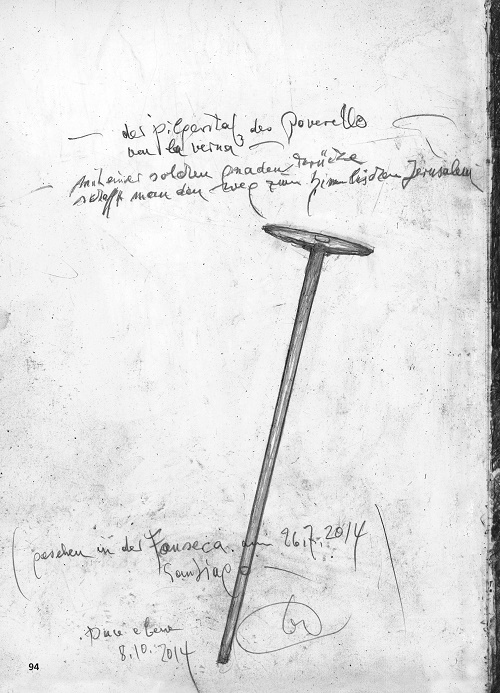 der pilgerstab des Poverello
von la verna
mit einer solchen gnadenkrücke
schafft man den weg zum himmlischen Jerusalem
(gesehen in der Fonseca. am 26.7.2014
Santiago
8.10.2014
94